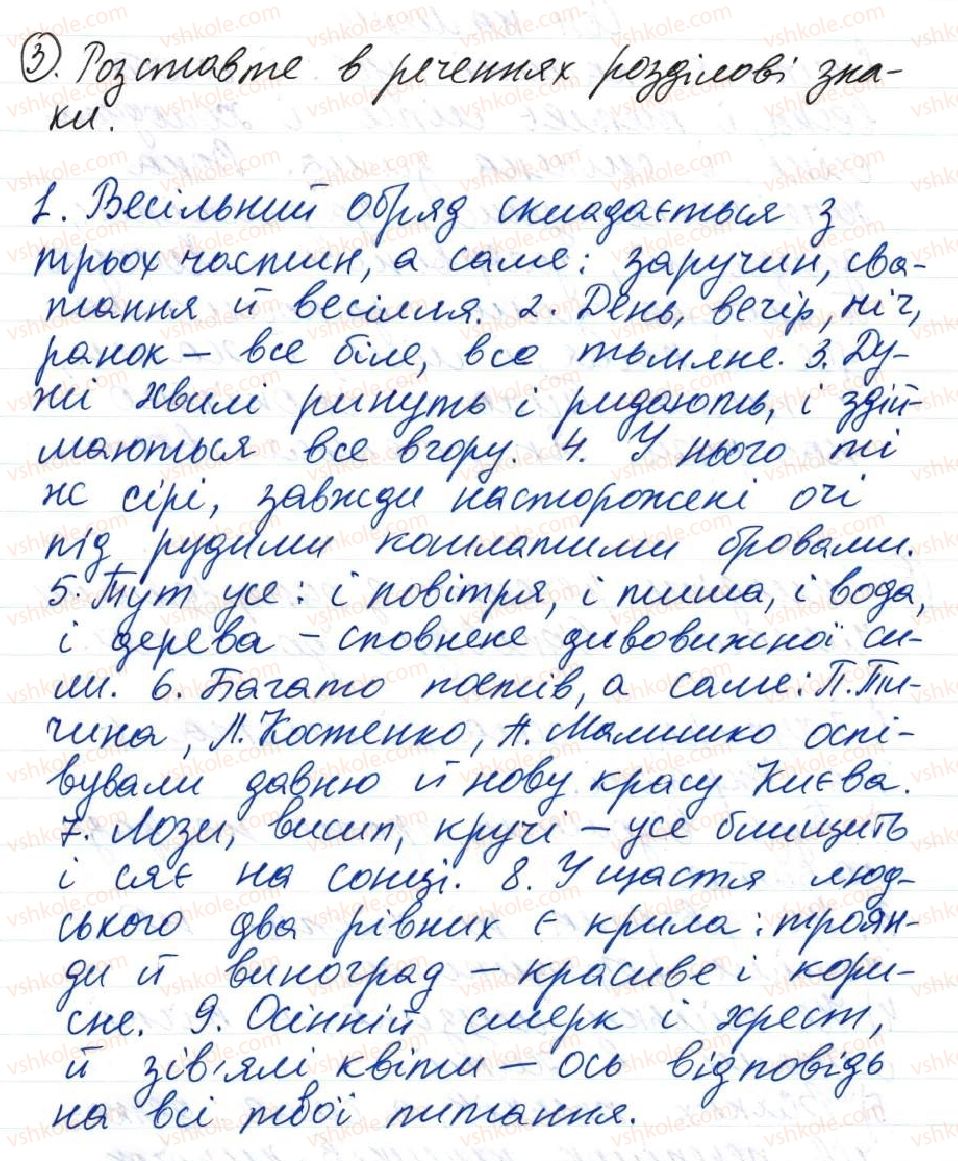 3. Розставте в реченнях розділові зна-
ки.
1. Весільний обряд складається з
трьох частин, а саме: заручин, сва-
тання й весілля. 2. День, вечір, ніч,
ранок – все біле, все тьмяне. 3. Ду-
жі хвилі ринуть і ридають, і здій-
маються все вгору. 4. У нього ті
ж сірі, завжди насторожені очі
під рудими кошлатими бровами.
5. Тут усе: і повітря, і тиша, і вода,
і дерева – сповнене дивовижної си-
ли. 6. Багато поетів, а саме: П. Ти-
чина, Л. Костенко, А. Малишко оспі-
вували давню й нову красу Києва.
7. Лози, висип, кручі – усе блищить
і сяє на сонці. 8. У щастя люд-
ського два рівних є крила: троян-
ди й виноград – красиве і кори-
сне. 9. Осінній смерк і хрест,
й зів'ялі квіти – ось відповідь
на всі твої питання.